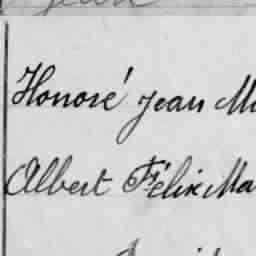 Honoré Jean Ma
Albert Félix Ma